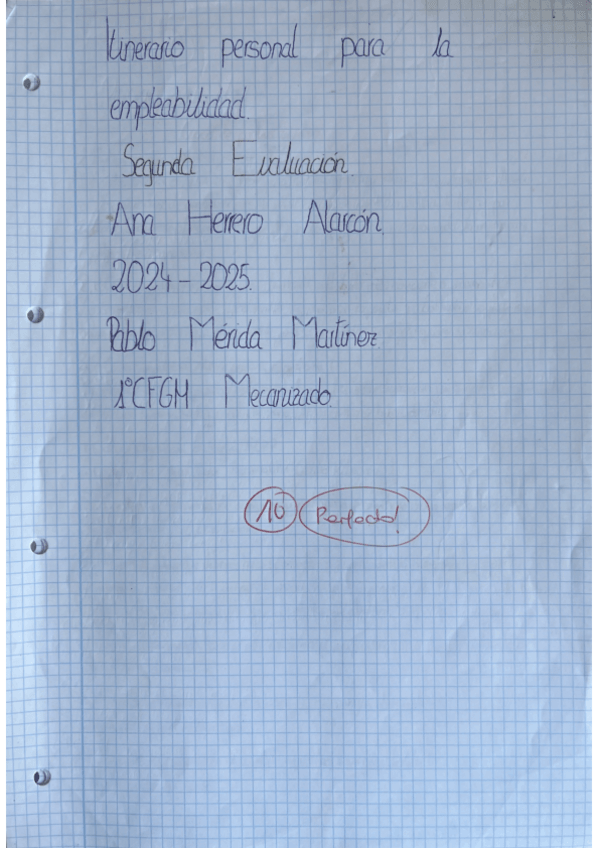 Itinerario personal para la
empleabilidad.
Segunda Evaluación.
Ana Herrero Alarcón.
2024-2025.
Pablo Mérida Martínez
1ºCFGM Mecanizado.
10 Perfecto!